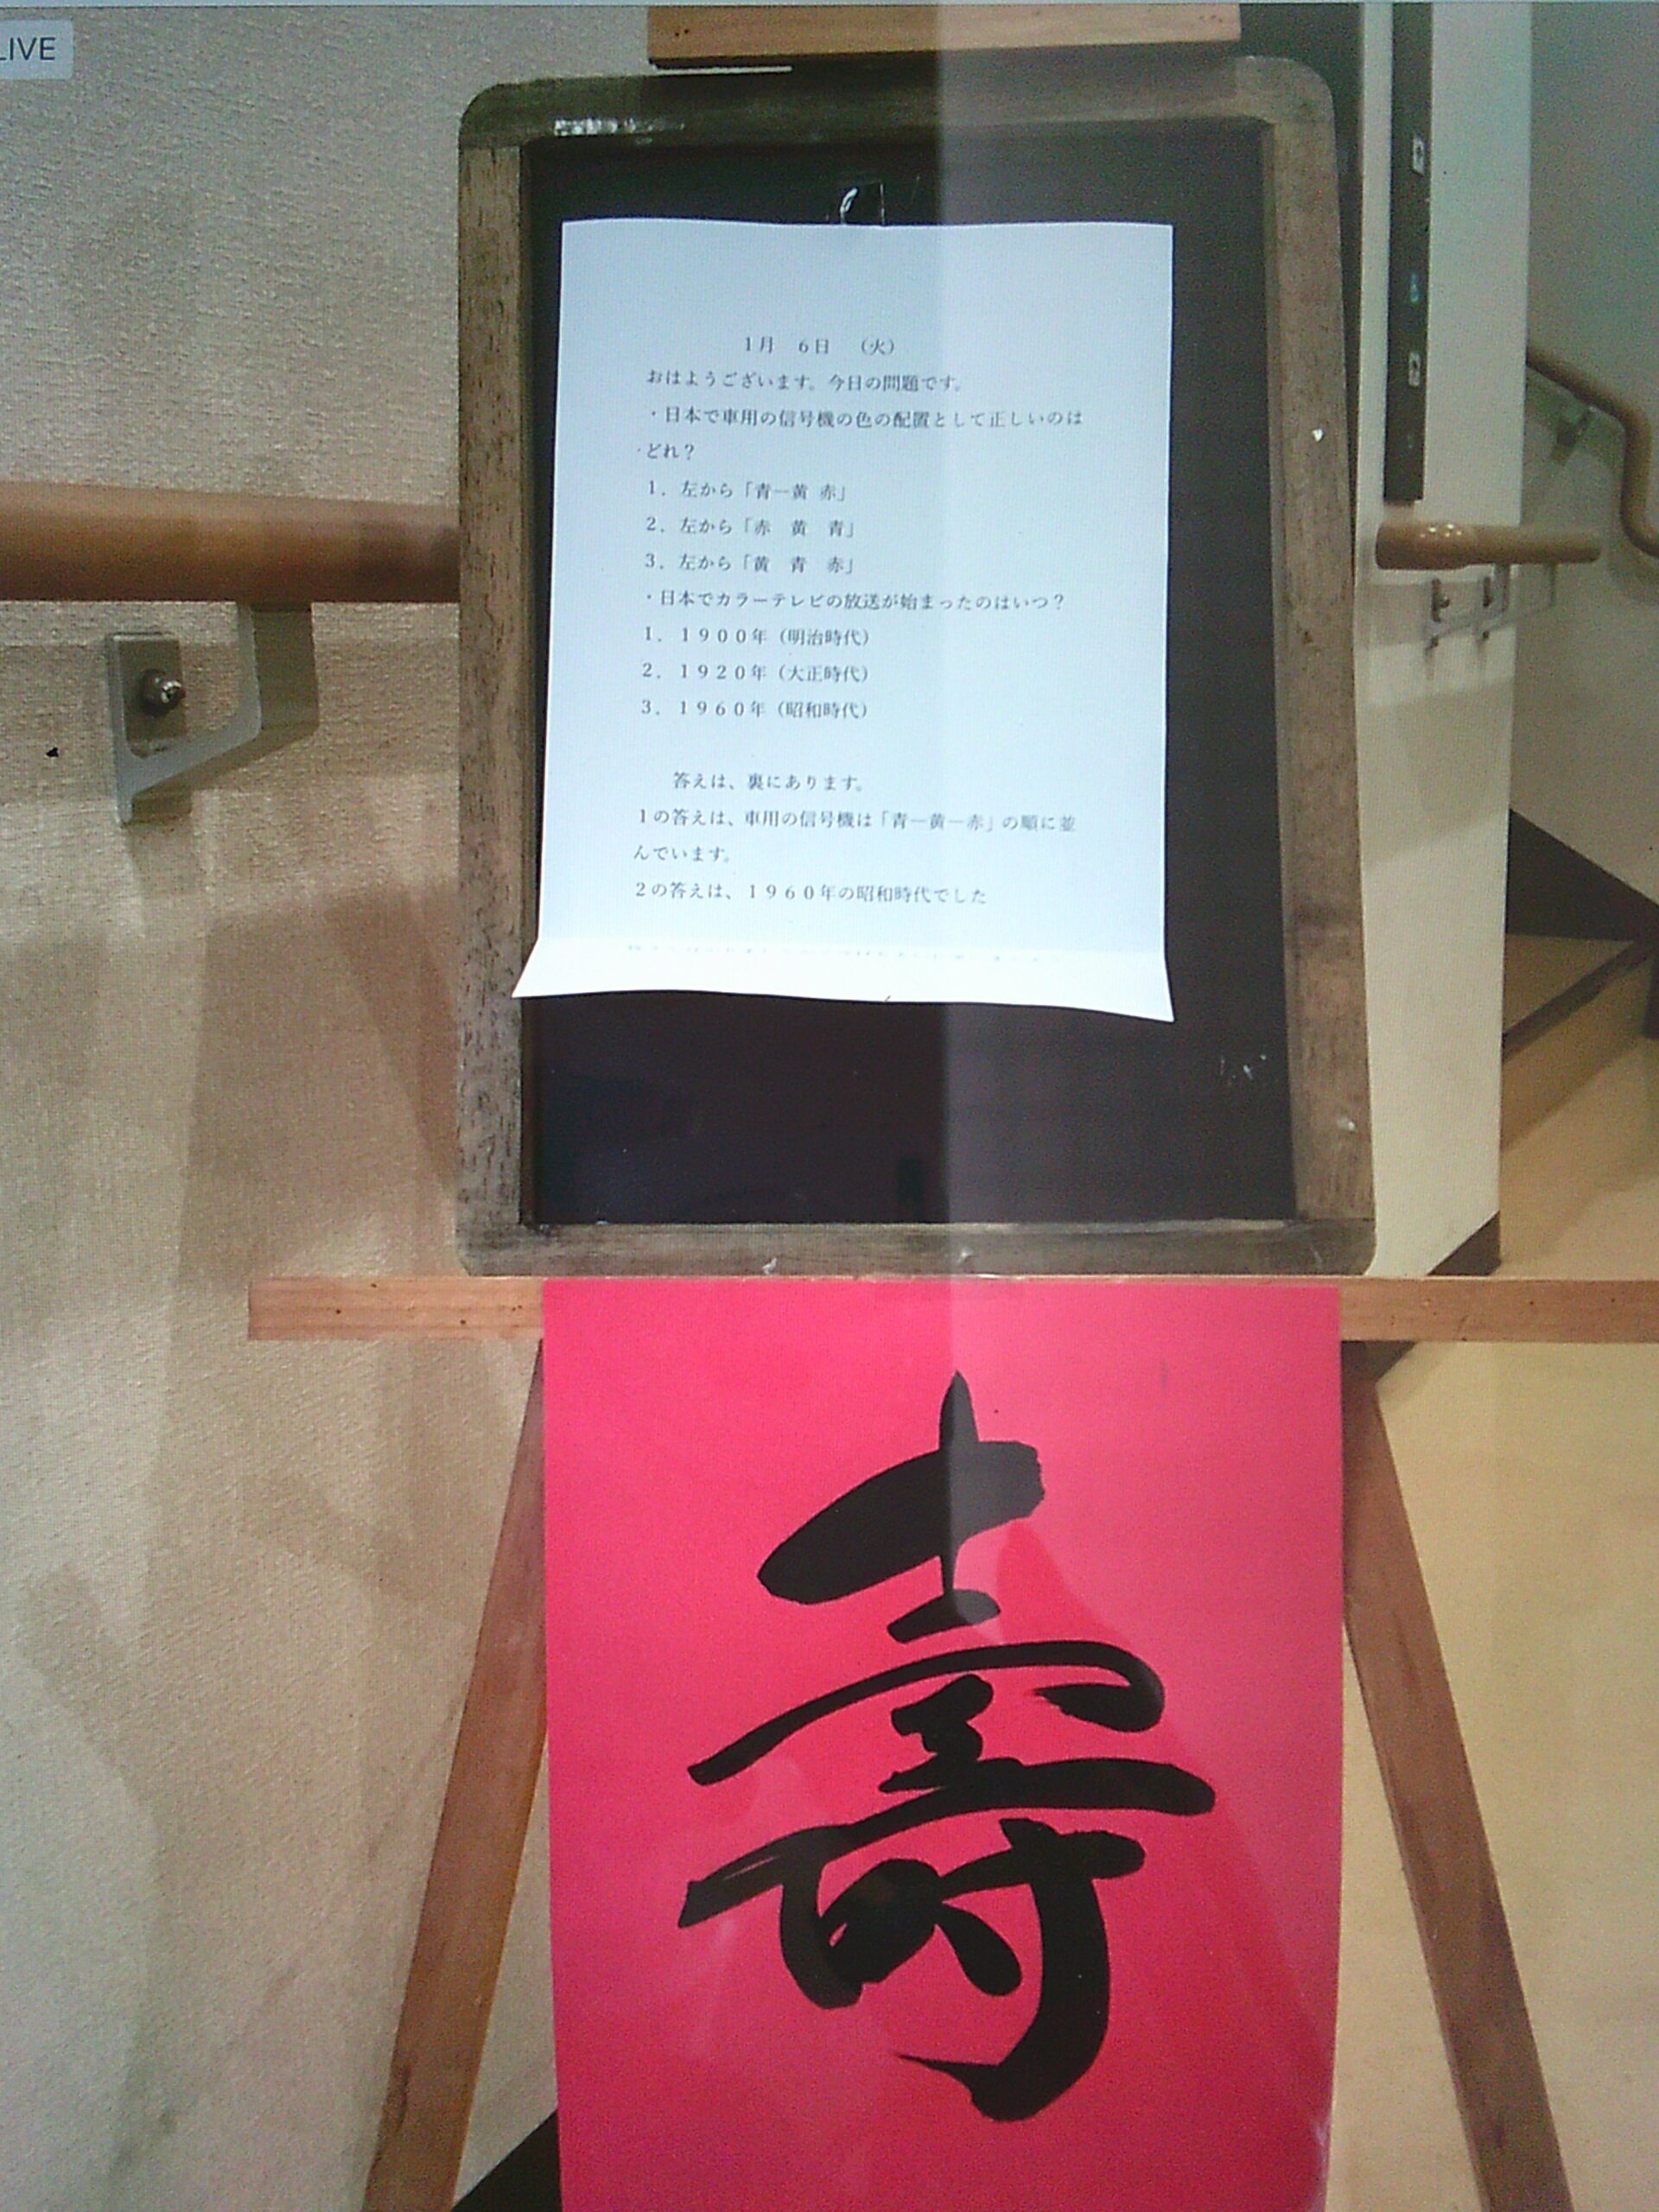 LIVE
1月 6日 (火)
おはようございます。今日の問題です。
・日本で車用の信号機の色の配置として正しいのは
どれ?
1. 左から「青―黄 赤」
2. 左から「赤 黄 青」
3. 左から「黄 青 赤」
・日本でカラーテレビの放送が始まったのはいつ?
1. 1900年(明治時代)
2. 1920年(大正時代)
3. 1960年(昭和時代)
答えは、裏にあります。
1の答えは、車用の信号機は「青―黄―赤」の順に並
んでいます。
2の答えは、1960年の昭和時代でした
寿